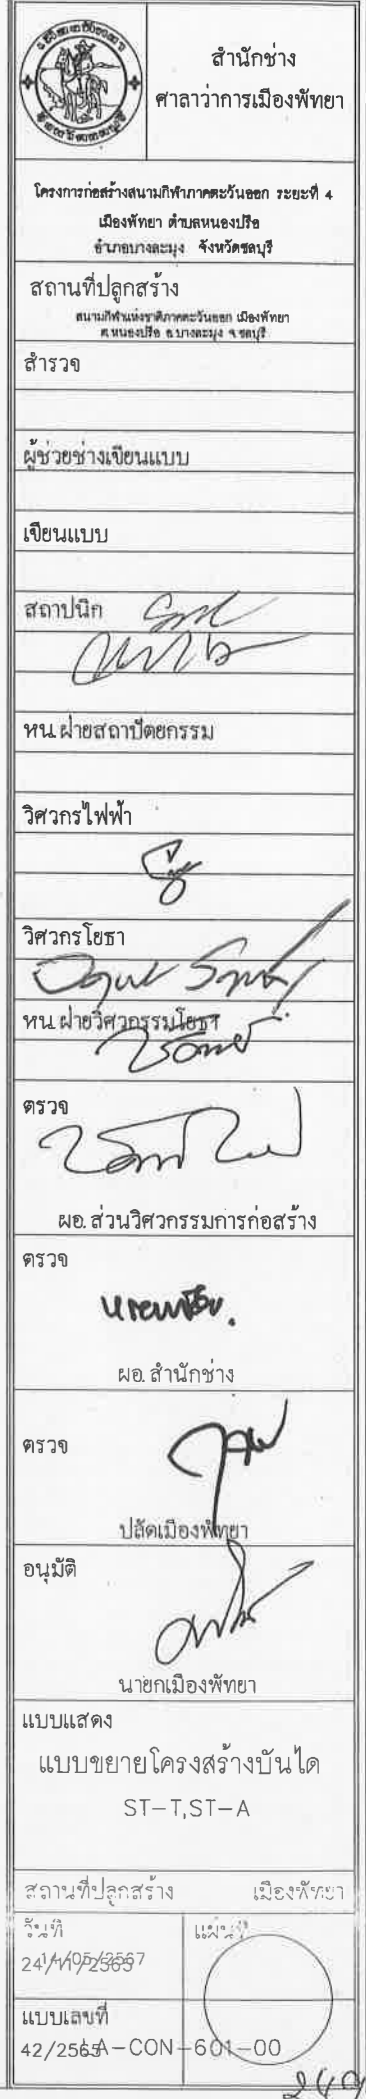 สำนักช่าง
ศาลาว่าการเมืองพัทยา
โครงการก่อสร้างสนามกีฬาภาคตะวันออก ระยะที่ 4
เมืองพัทยา ตำบลหนองปรือ
อำเภอบางละมุง จังหวัดชลบุรี
สถานที่ปลูกสร้าง
สนามกีฬาแห่งชาติภาคตะวันออก เมืองพัทยา
ต.หนองปรือ อ.บางละมุง จ.ชลบุรี
สำรวจ
ผู้ช่วยช่างเขียนแบบ
เขียนแบบ
สถาปนิก
หน.ฝ่ายสถาปัตยกรรม
วิศวกรไฟฟ้า
วิศวกรโยธา
หน.ฝ่ายวิศวกรรมโยธา
ตรวจ
ผอ.ส่วนวิศวกรรมการก่อสร้าง
ตรวจ
ผอ.สำนักช่าง
ตรวจ
ปลัดเมืองพัทยา
อนุมัติ
นายกเมืองพัทยา
แบบแสดง
แบบขยายโครงสร้างบันได
ST-T,ST-A
สถานที่ปลูกสร้าง เมืองพัทยา
วันที่ แผ่นที่
แบบเลขที่
42/2565 A-CON-601-00